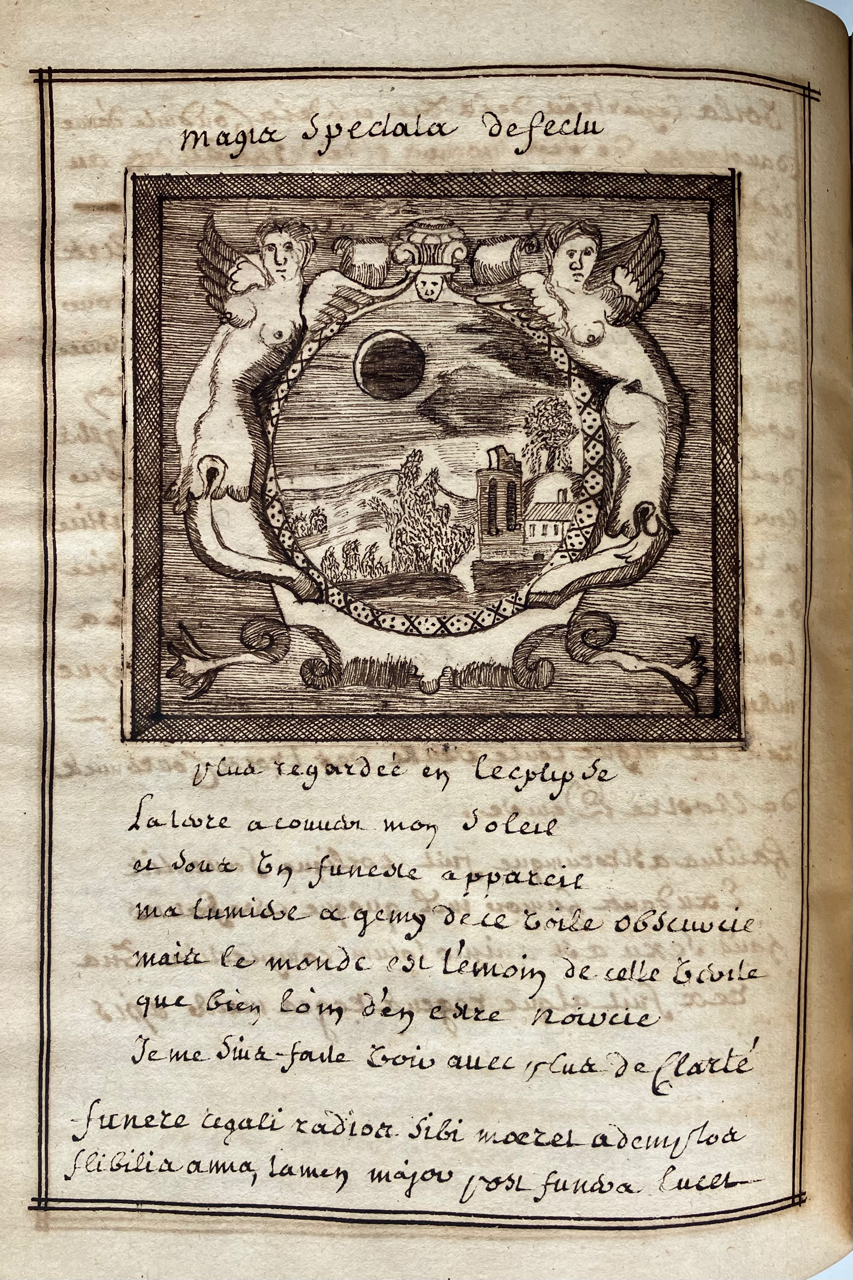 magis Spectata defectu
plus regardeé en lecplipse
La terre a couuert mon Soleil
et Sous Un funeste appareil
ma lumiere a gemy de ce Voile obscurcie
mais le monde est témoin de cette Verite
que bien loin d'en estre noircie
Je me suis faite Voir avec plus de Clarté
funere regali radios sibi mœret ademptos
flebilis anna, tamen major post funera lucet